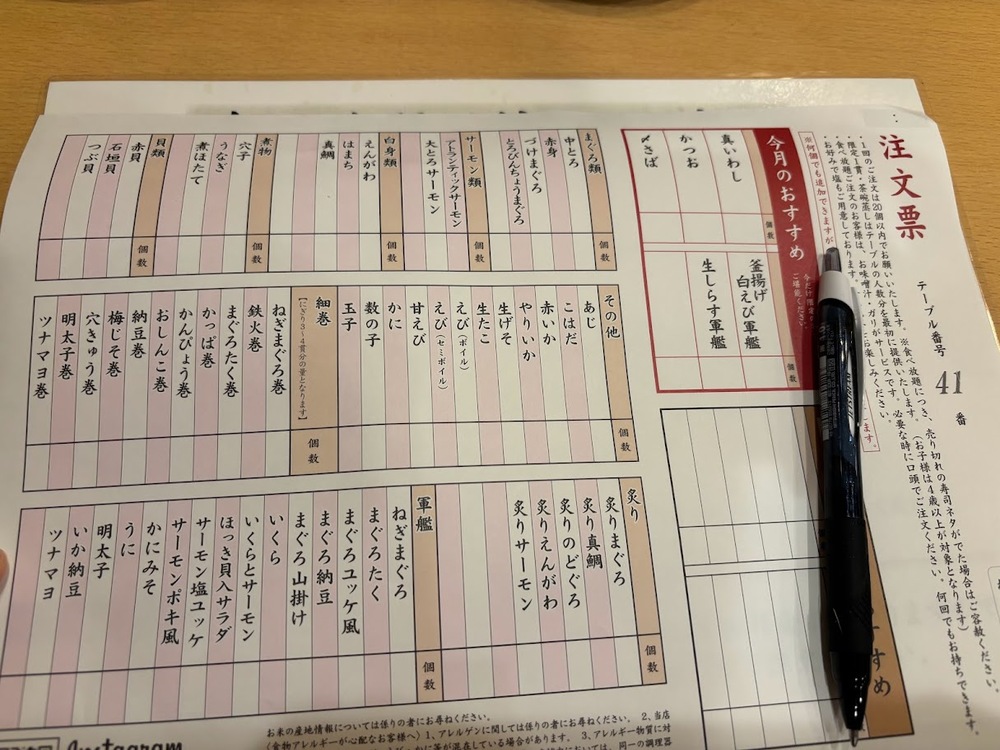 注文票
テーブル番号 41 番
・1回のご注文は20個以内でお願いいたします。※食べ放題につき、売り切れの寿司ネタがでた場合はご容赦ください。
・限定1貫・茶碗蒸しはテーブルの人数分を最初に提供いたします。(お子様は4歳以上が対象となります)
・食べ放題ご注文のお客様は、お味噌汁・ガリがサービスです。必要な時に口頭でご注文ください。何回でもお持ちできます。
・お好みで塩もご用意しております。
お楽しみください。
※何個でも追加できますが
ます。
今月のおすすめ
今だけ限定
ご堪能ください。
個数
真いわし
かつお
〆さば
個数
釜揚げ
白えび軍艦
生しらす軍艦
すめ
まぐろ類
個数
中とろ
赤身
づけまぐろ
とろびんちょうまぐろ
サーモン類
個数
アトランティックサーモン
大とろサーモン
白身類
個数
えんがわ
はまち
真鯛
煮物
個数
穴子
うなぎ
煮ほたて
貝類
個数
赤貝
石垣貝
つぶ貝
その他
個数
あじ
こはだ
赤いか
やりいか
生げそ
生たこ
えび(ボイル)
えび(セミボイル)
甘えび
かに
数の子
玉子
細巻
【にぎり3〜4貫分の量となります】
個数
ねぎまぐろ巻
鉄火巻
まぐろたく巻
かっぱ巻
かんぴょう巻
おしんこ巻
納豆巻
梅じそ巻
穴きゅう巻
明太子巻
ツナマヨ巻
炙り
個数
炙りまぐろ
炙り真鯛
炙りのどぐろ
炙りえんがわ
炙りサーモン
軍艦
個数
ねぎまぐろ
まぐろたく
まぐろユッケ風
まぐろ納豆
まぐろ山掛け
いくら
いくらとサーモン
ほっき貝入サラダ
サーモン塩ユッケ
サーモンポキ風
かにみそ
うに
明太子
いか納豆
ツナマヨ
お米の産地情報については係りの者にお尋ねください。
(食物アレルギーが心配なお客様へ)1、アレルゲンに関しては係りの者にお尋ねください。2、当店
かに等が混在している場合があります。3、アレルギー物質に対
おいては、同一の調理器
Instagram